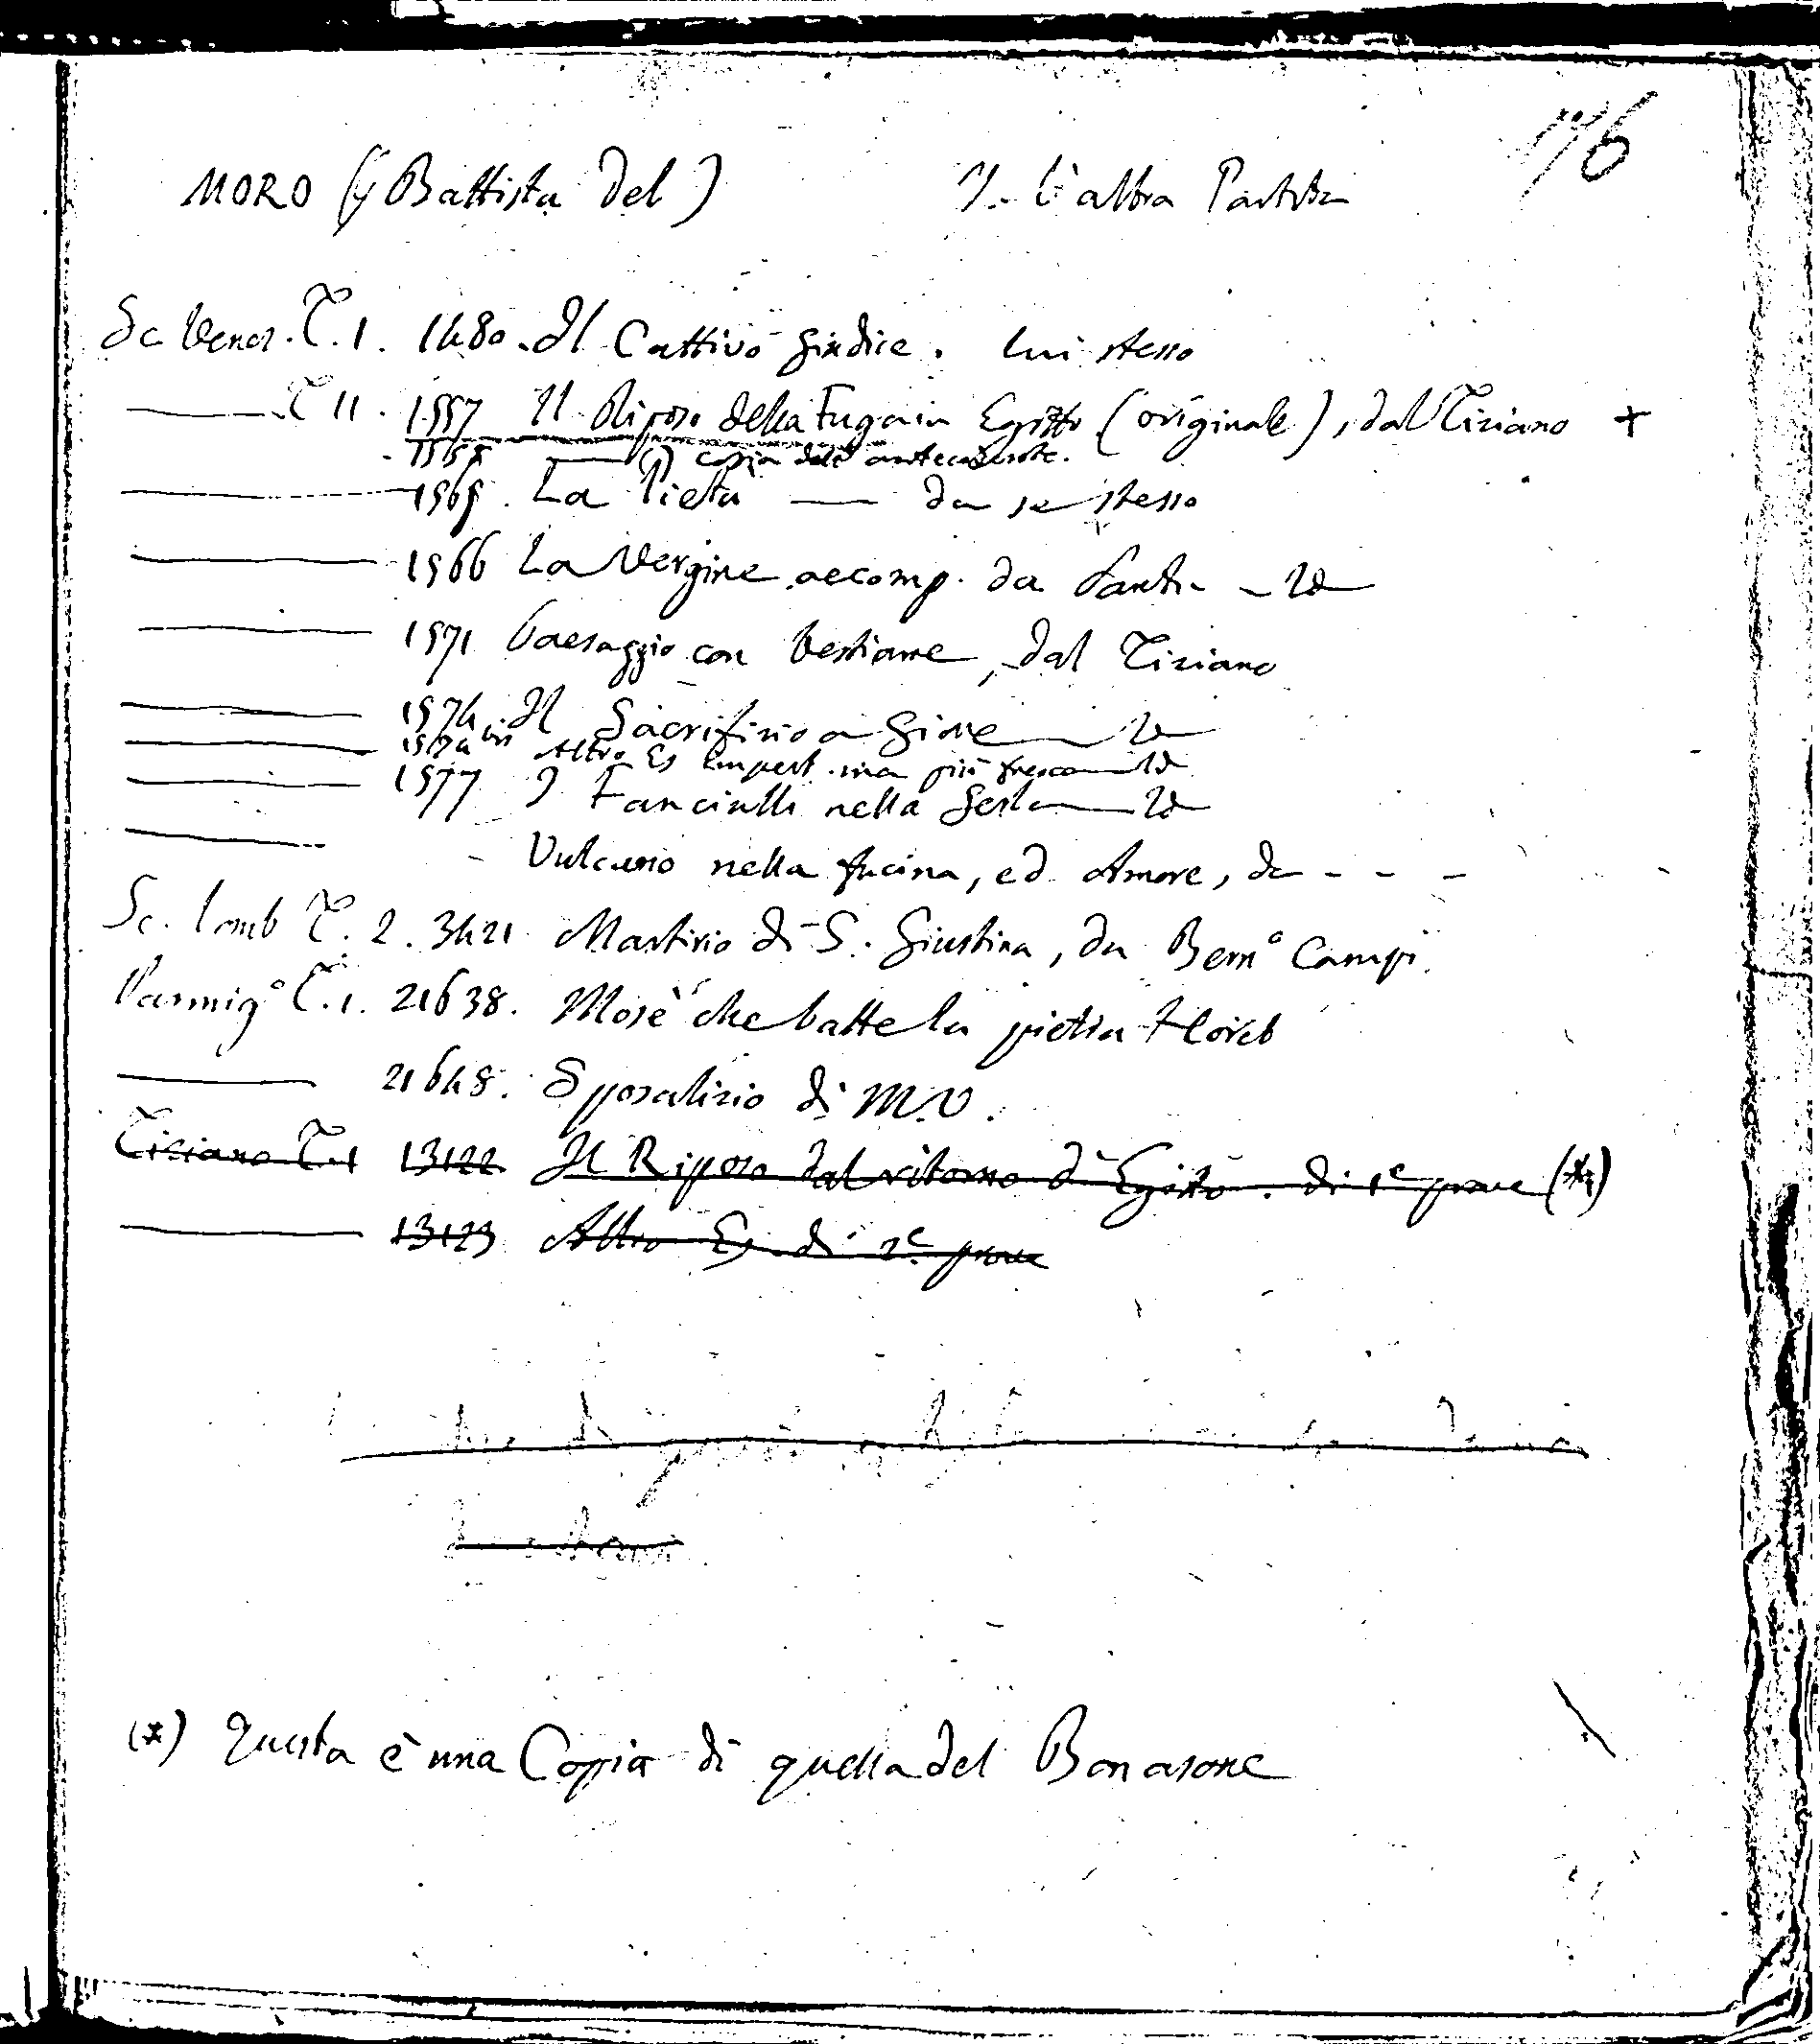 176
MORO (G Battista del) V. l'altra Partita
Sc Venez. T. 1. 1480. Il Cattivo Giudice. lui stesso
——— T II. 1557 Il Riposo della Fuga in Egitto (originale), dal Tiziano +
1558 —— (j) copia dell' antecedente.
——— 1565. La Pietà —— da se stesso
——— 1566 La Vergine accomp. da Santi — Id
——— 1571 Paesaggio con bestiame, dal Tiziano
——— 1574 Il Sacrifizio a Giove —— Id
——— 1574 bis Altro Es. ma più fresco — Id
——— 1577 I Fanciulli nella —— Id
——— Vulcano nella fucina, ed Amore, da - - -
Sc. Lomb T. 2. 3421 Martirio di S. Giustina, da Bern.º Campi.
Parmigº T. 1. 21638. Mosè che batte la pietra Horeb
——— 21648. Sposalizio di M.V.
Tiziano T. 1 13122 Il Riposo dal ritorno d'Egitto. di 1e prove (*)
——— 13123 Altro Es. di 2e prove
(*) Questa è una Copia di quella del Bonasone